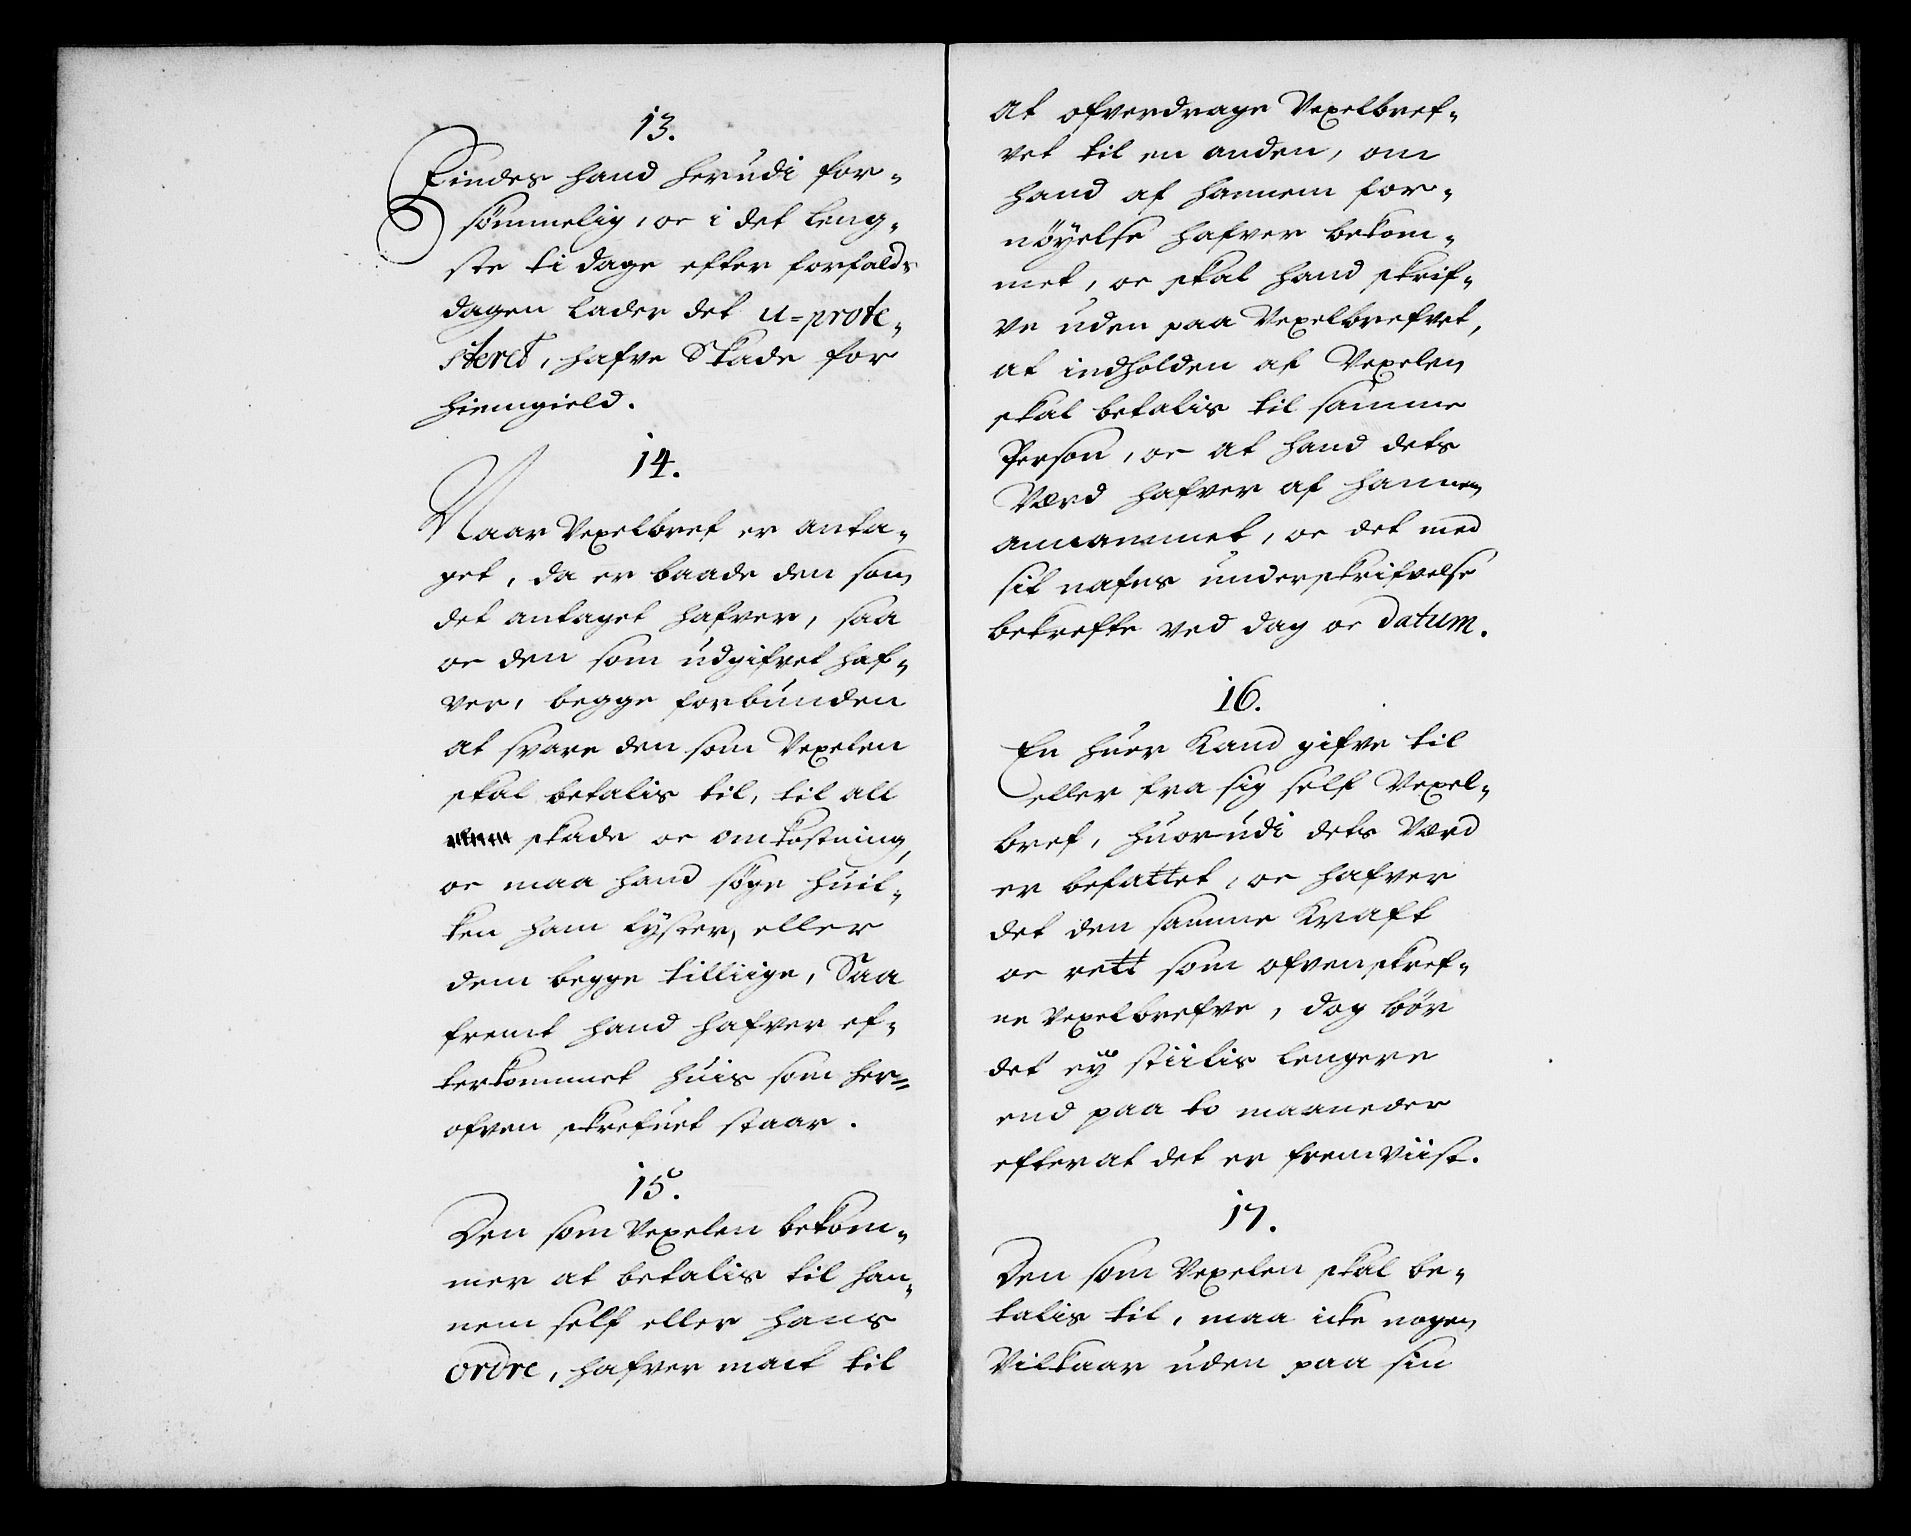 13.
Findes hand herudi for-
sømmelig, oc i det leng-
ste ti dage efter forfalds
dagen lader det u=prote-
steret, hafve Skade for
hiemgield.
14.
Naar Vexelbref er anta-
get, da er baade den som
det antaget hafver, saa
oc den som udgifvet haf-
ver, begge forbunden
at svare den som Vexelen
skal betalis til, til all
skade oc omkostning,
oc maa hand søge huil-
ken ham lyster, eller
dem begge tilliige, Saa
fremt hand hafver ef-
terkommet huis som her=
ofven skrefuet staar.
15.
Den som Vexelen bekom-
mer at betalis til han-
nem self eller hans
ordre, hafver mact til
at ofverdrage Vexelbref-
vet til en anden, om
hand af hannem for-
nøyelse hafver bekom-
met, oc skal hand skrif-
ve uden paa Vexelbrefvet,
at indholden af Vexelen
skal betalis til samme
Person, oc at hand dets
Værd hafver af hannem
annammet, oc det med
sit nafns underskrifvelse
bekrefte ved dag oc datum.
16.
En huer Kand gifve til
eller fra sig self Vexel-
bref, huor-udi dets Værd
er befattet, oc hafver
det den samme Kraft
oc rett som ofvenskref-
ne Vexelbrefve, dog bør
det ey stiilis lengere
end paa to maaneder
efter at det er fremviist.
17.
Den som Vexelen skal be-
talis til, maa icke nogen
Vilkaar uden paa sin